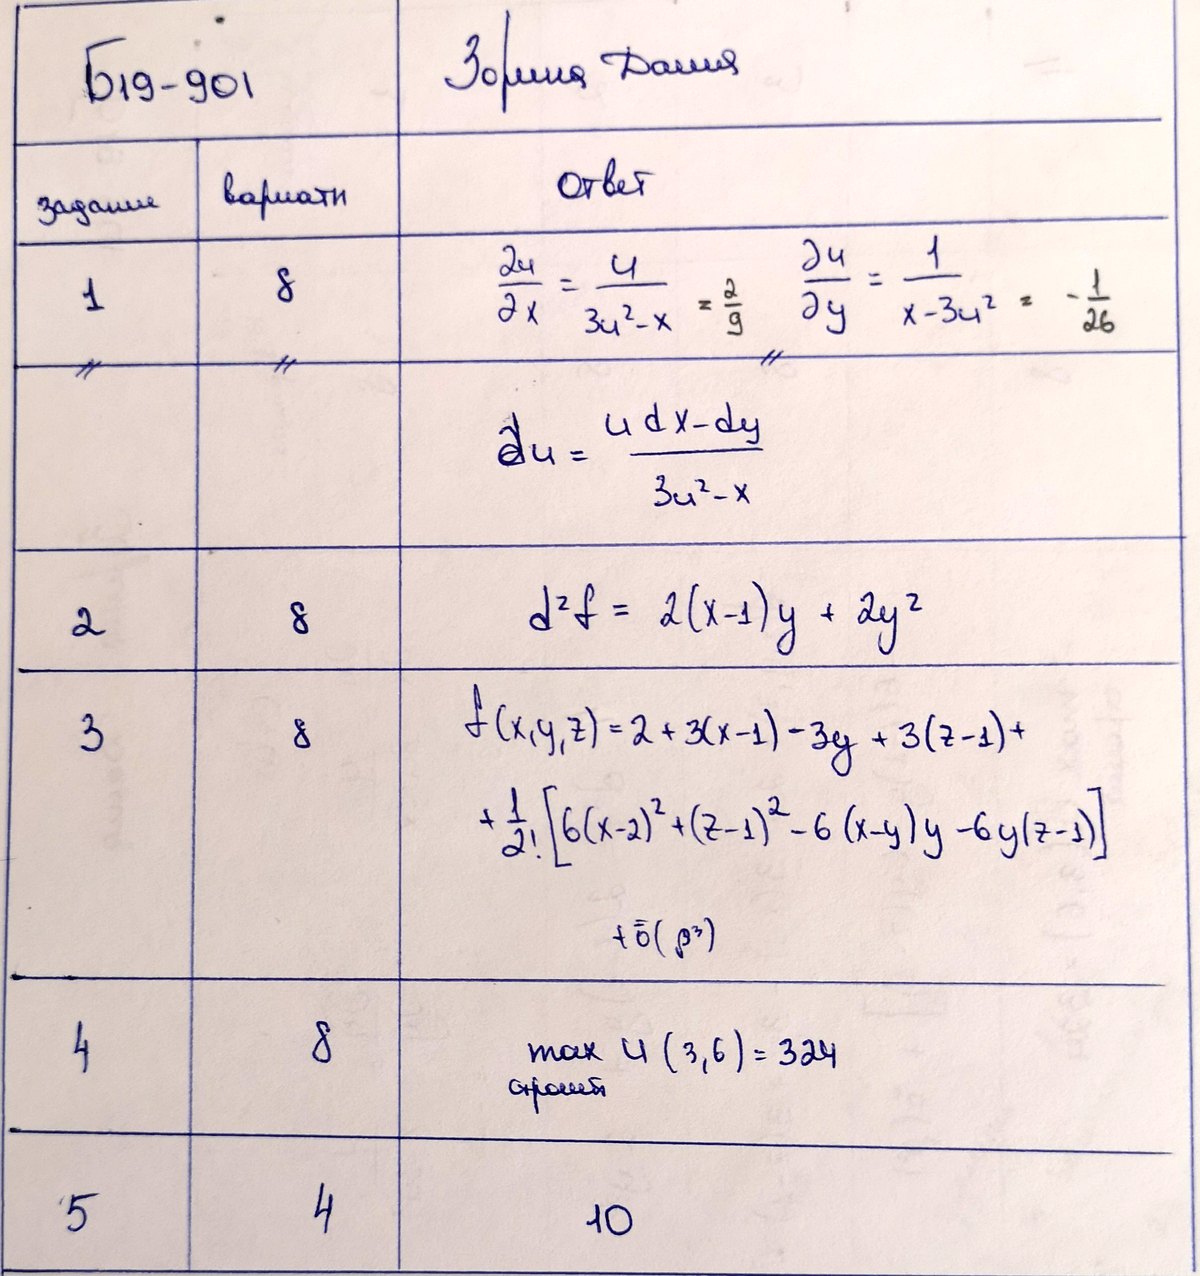 Б19-901 Зорина Дания
задание вариант Ответ
1 8 ∂u/∂x = u/(3u²-x) = 2/9 ∂u/∂y = 1/(x-3u²) = -1/26
du = (u dx-dy)/(3u²-x)
2 8 d²f = 2(x-1)y + 2y²
3 8 f(x,y,z) = 2 + 3(x-1) - 3y + 3(z-1) +
+ 1/2! [6(x-2)² + (z-1)² - 6(x-y)y - 6y(z-1)]
+ ō(ρ³)
4 8 max u (3,6) = 324
строгий
5 4 10